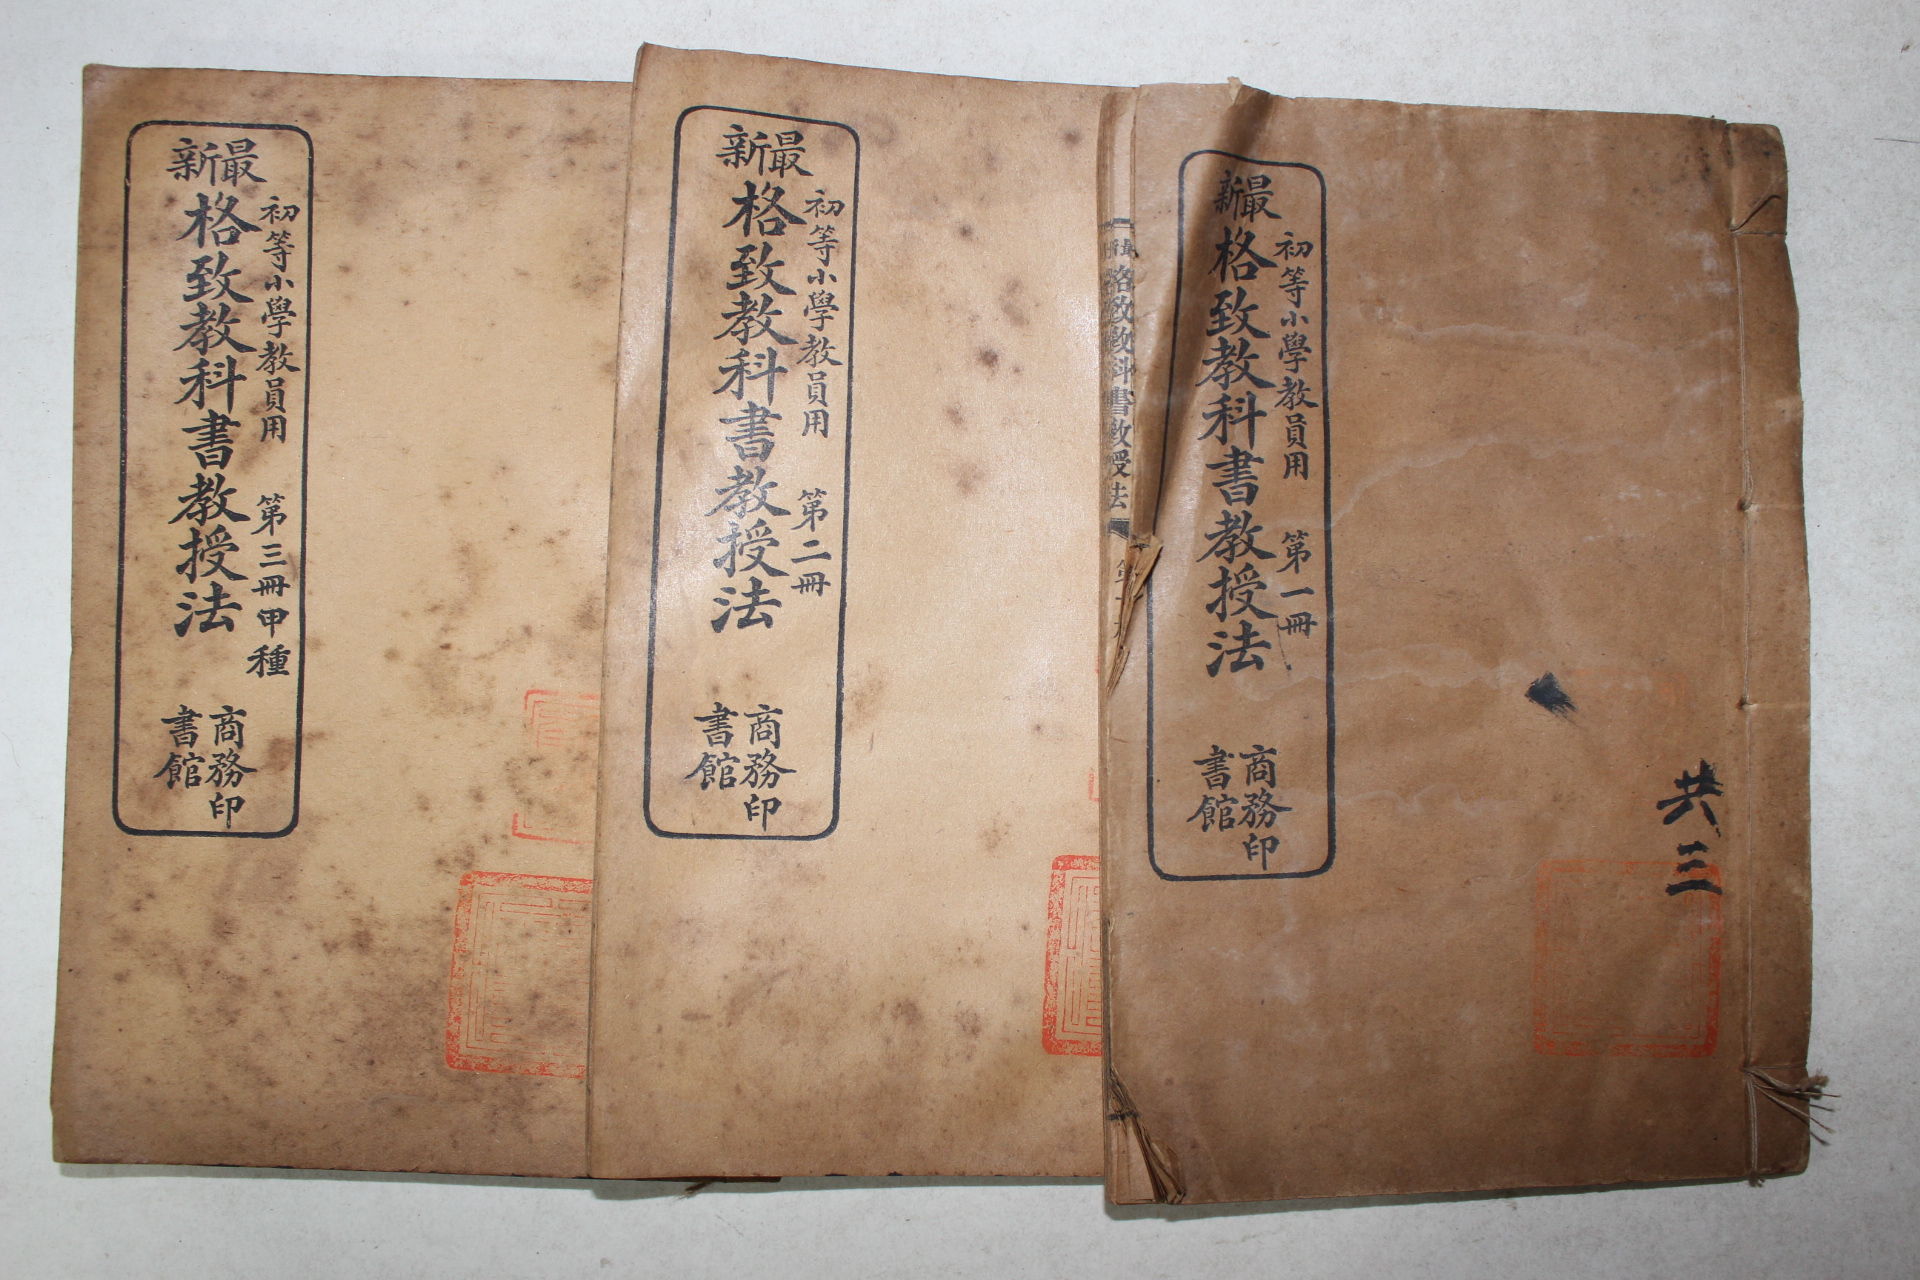 最新
初等小學教員用 第一冊
格致教科書教授法
商務印書館
共三
格致教科書教授法
最新
初等小學教員用 第二冊
格致教科書教授法
商務印書館
最新
初等小學教員用 第三冊甲種
格致教科書教授法
商務印書館